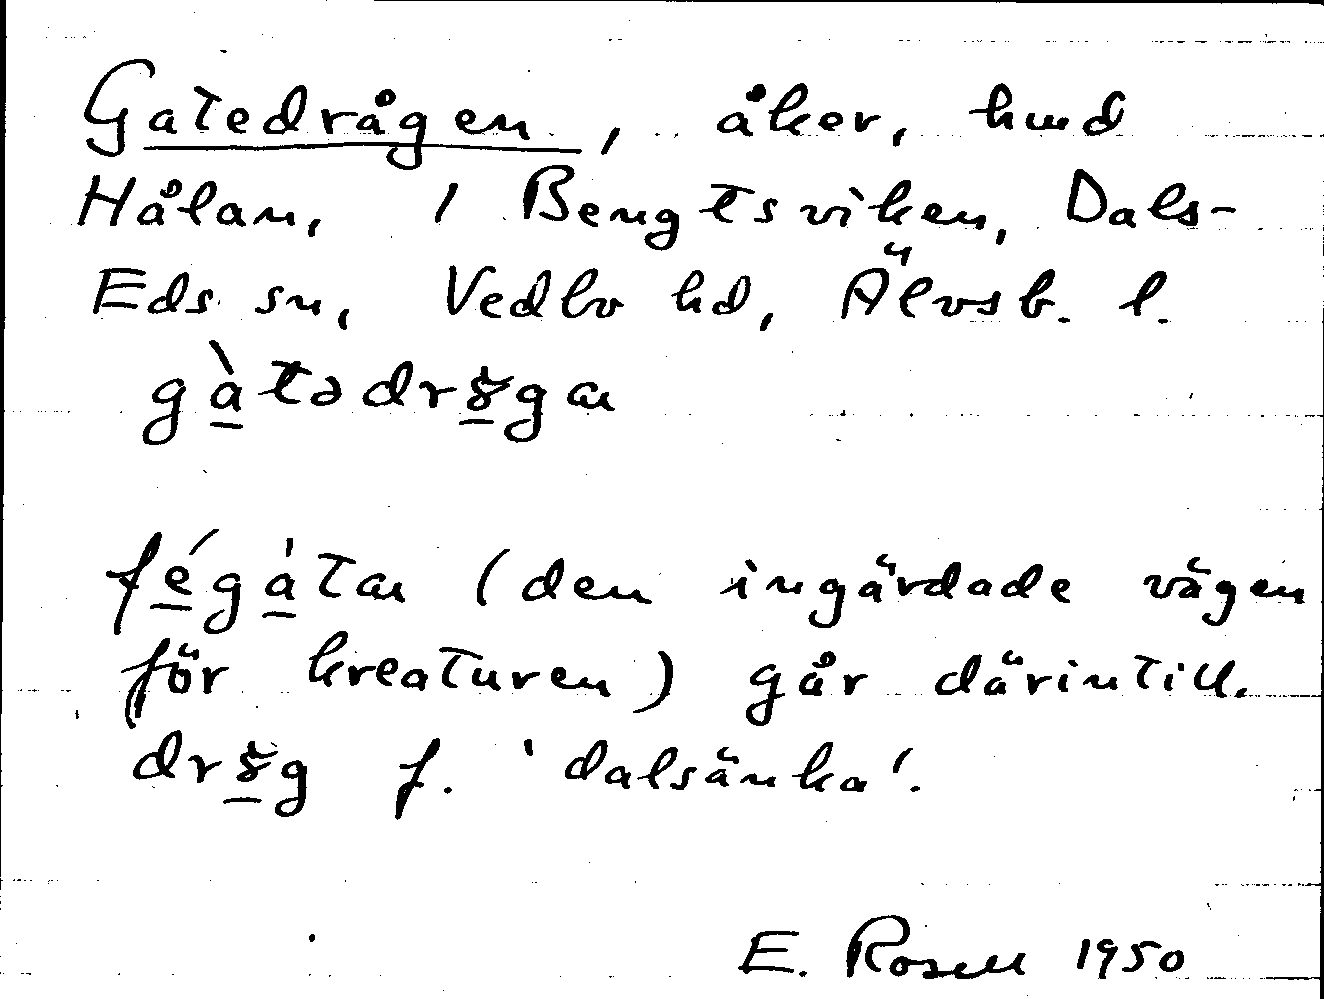 Gatedrågen, åker, hmd
Hålan, 1 Bengtsviken, Dals-
Eds sn, Vedbo hd, Älvsb. l.
gàtədrɤ̆gan
fégàtan (den ingärdade vägen
för kreaturen) går därintill.
drɤ̆g f. 'dalsänka'.
E. Rosell 1950